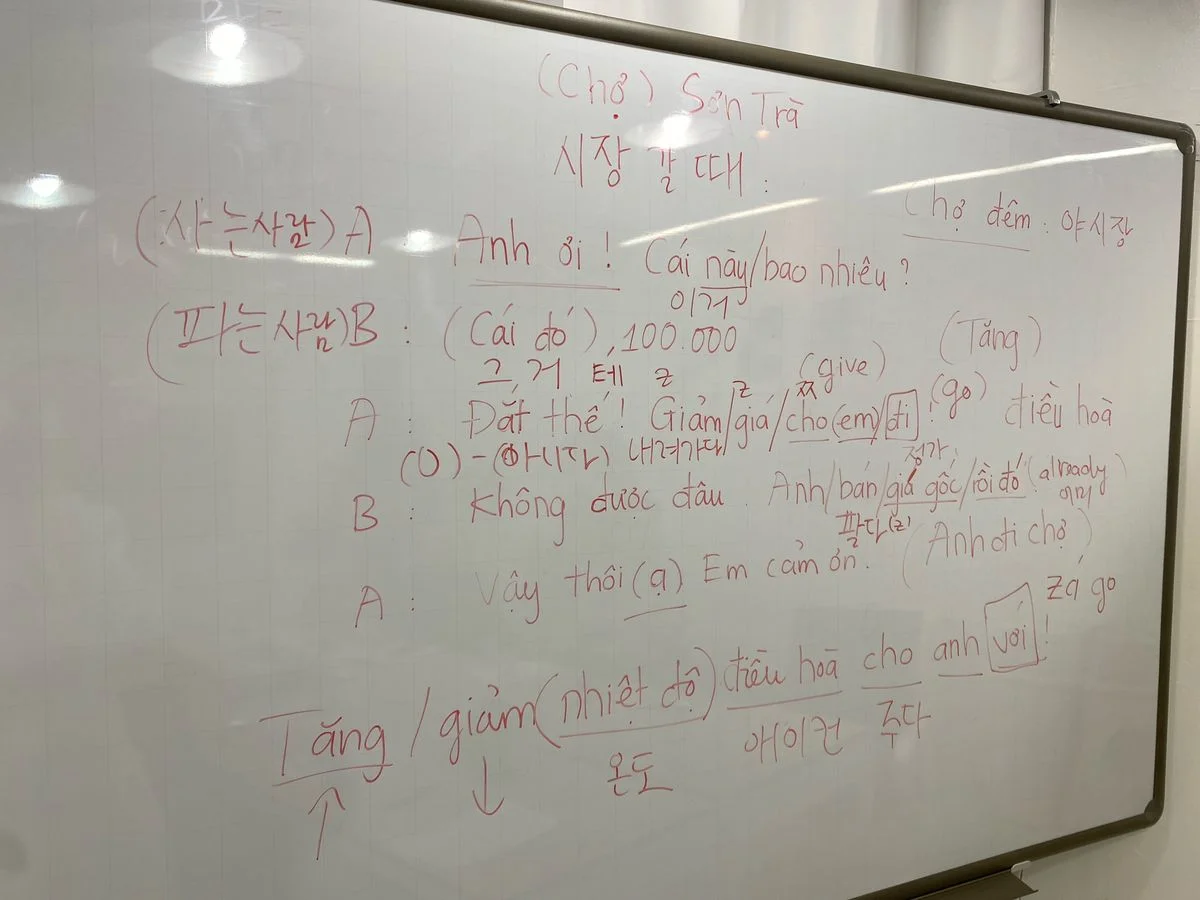 (Chợ) Sơn Trà
시장 갈 때 :
Chợ đêm : 야시장
(사는사람) A : Anh ơi ! Cái này/bao nhiêu ?
이거
(파는사람) B : (Cái đó), 100.000
그, 거 테 z
(give) (Tăng)
z ㅉ (go)
A : Đắt thế ! Giảm/giá/cho(em)/đi ! điều hoà
(O) - (아시다) 내려가다 정가
B : Không được đâu. Anh/bán/giá gốc/rồi đó (already
팔다(z) 이미
A : Vậy thôi (ạ) Em cảm ơn. (Anh đi chợ)
zá go
Tăng / giảm (nhiệt độ) điều hoà cho anh với !
↑ ↓ 온도 에이컨 주다